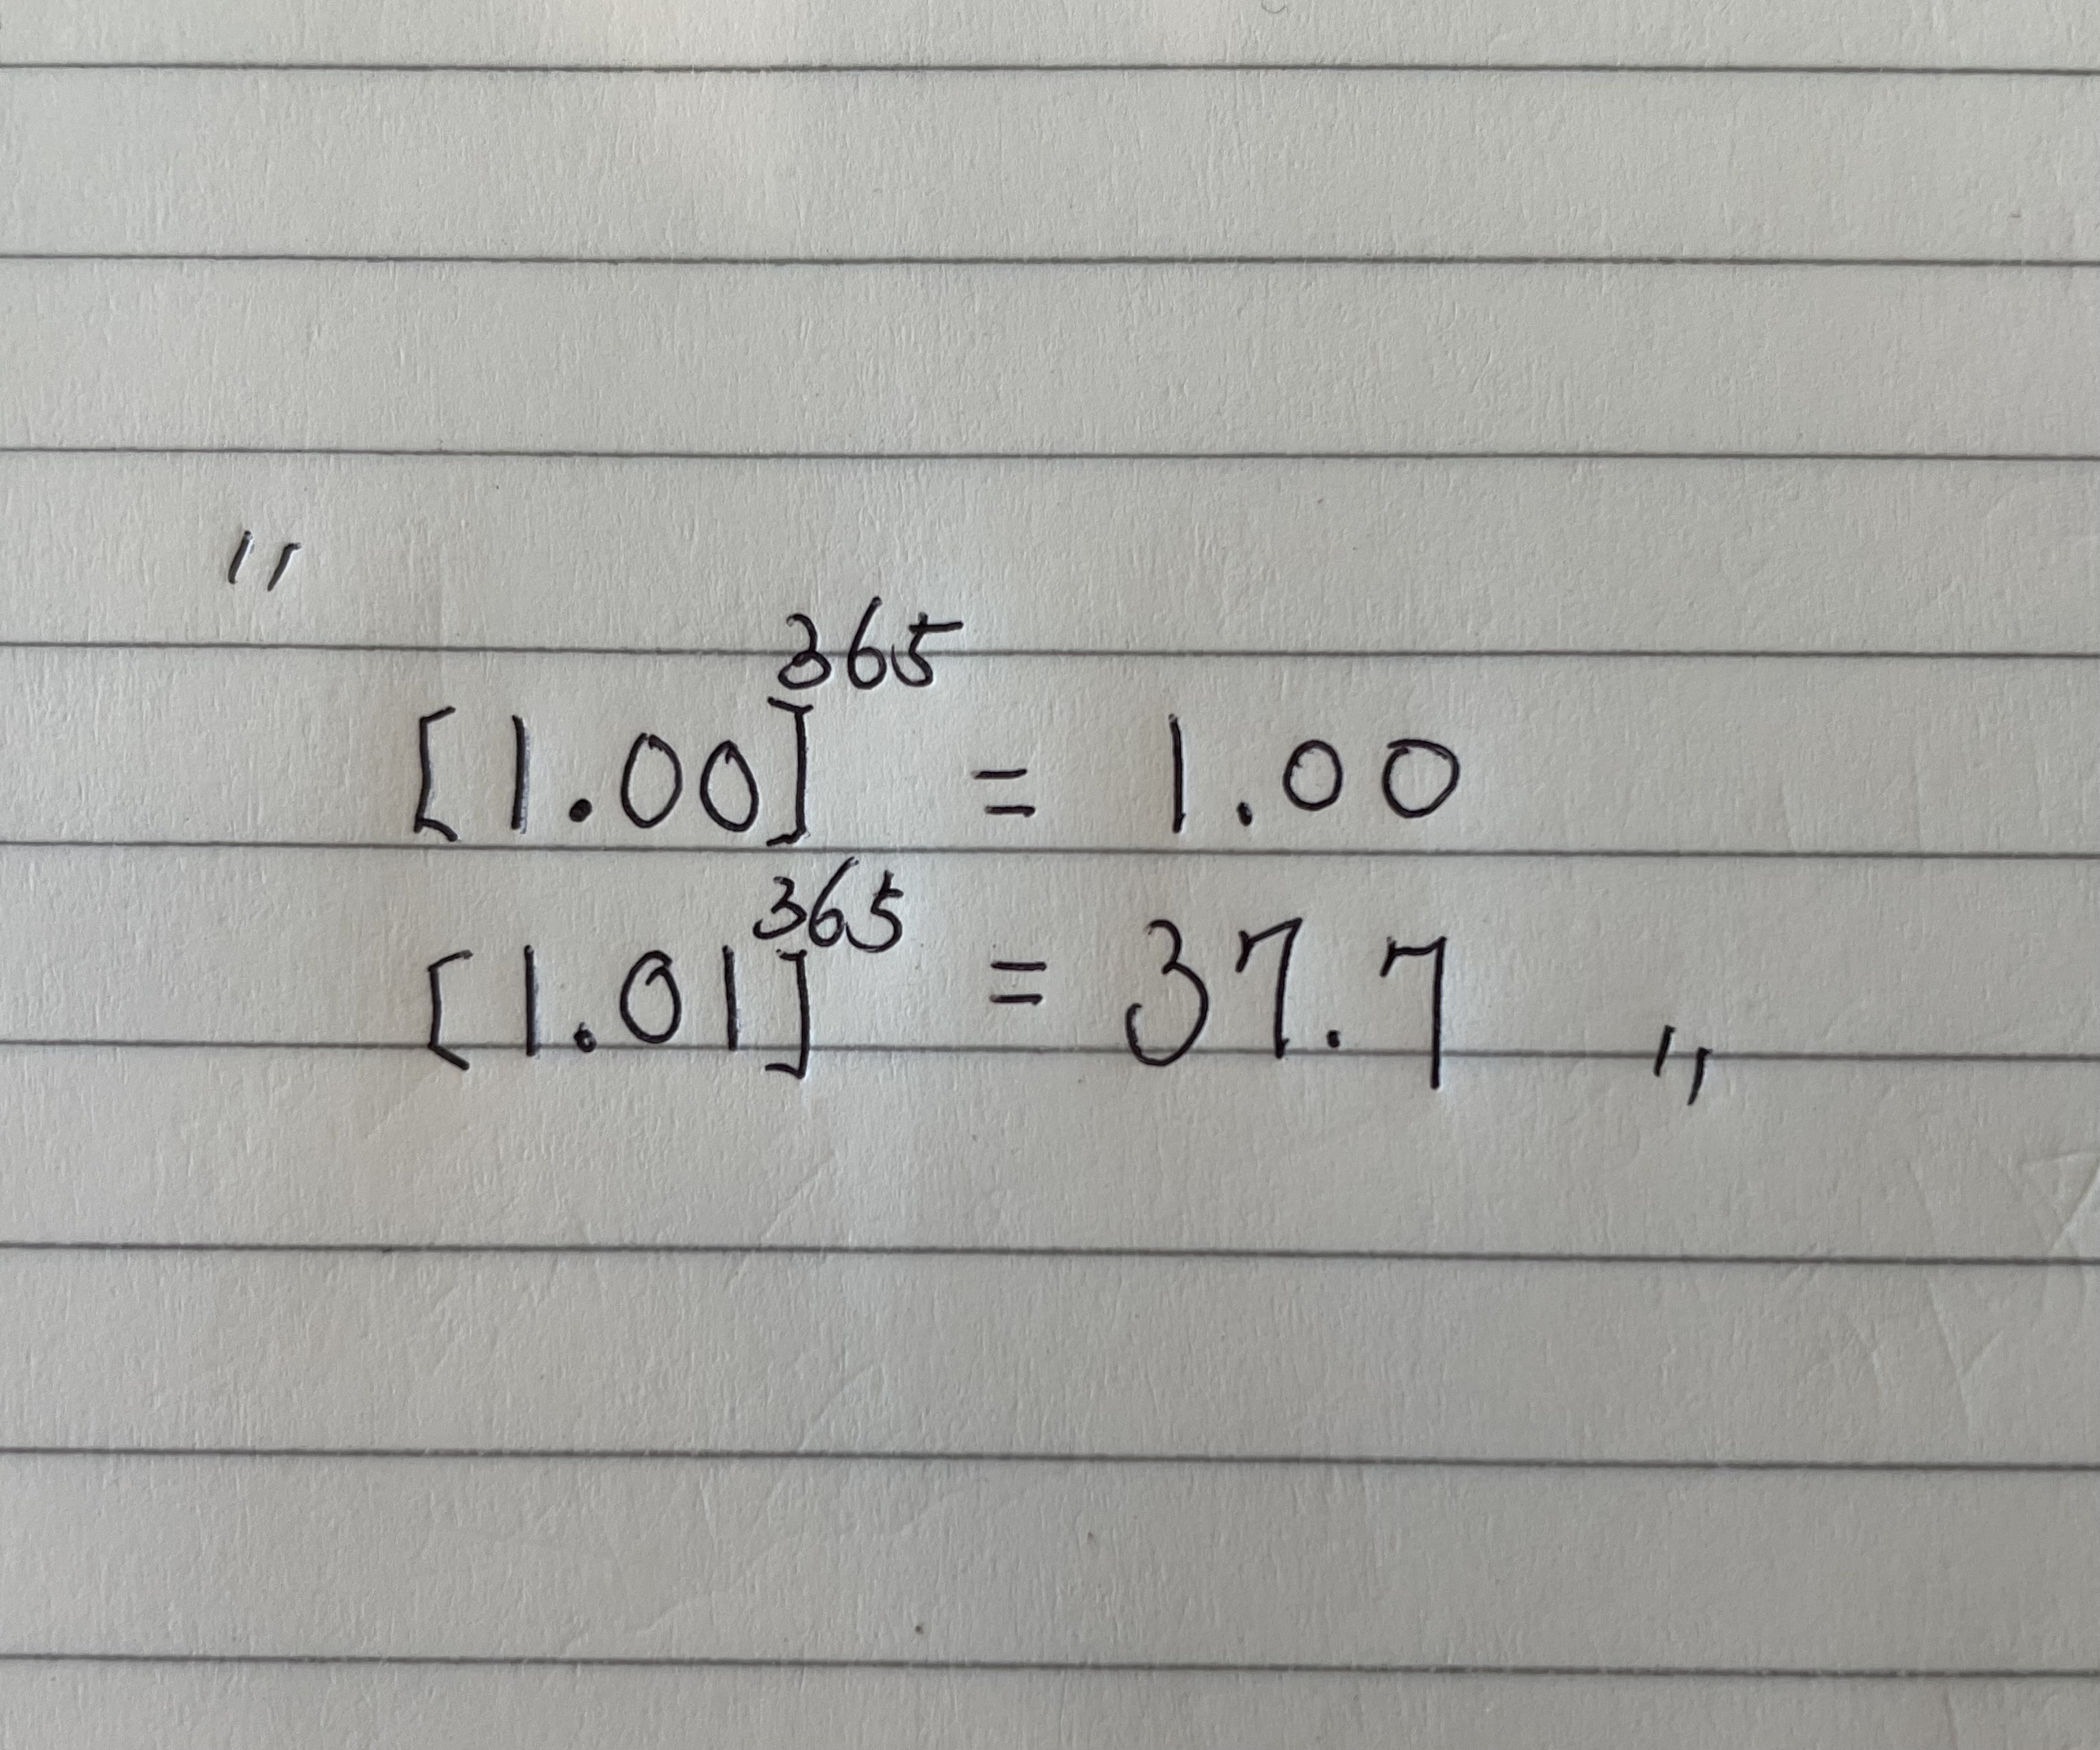 "
[1.00]³⁶⁵ = 1.00
[1.01]³⁶⁵ = 37.7 "